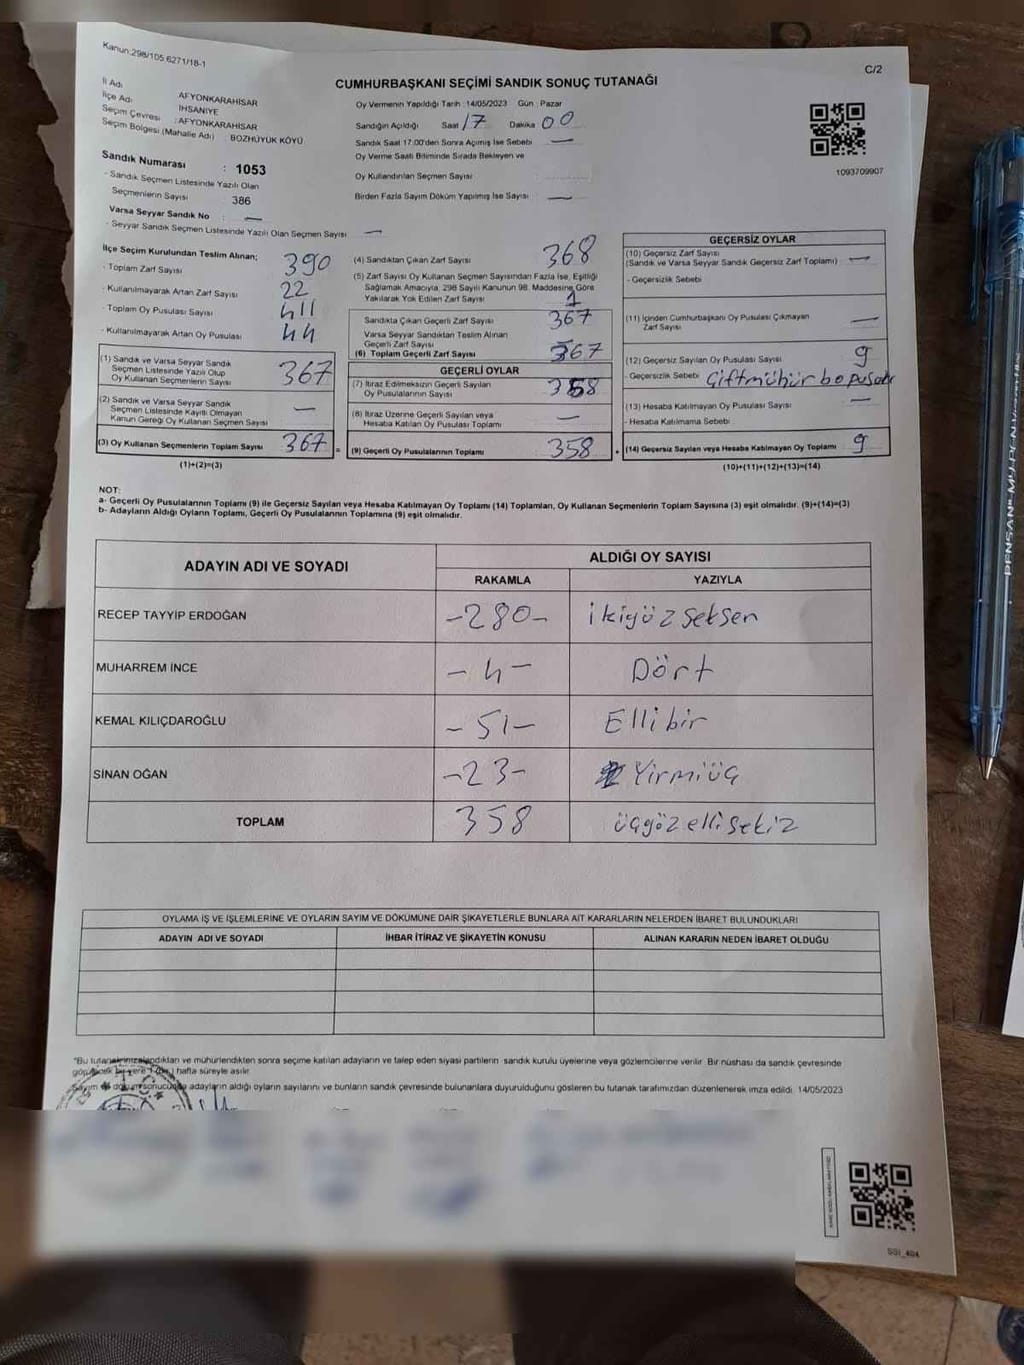 Kanun:298/105 6271/18-1
C/2
CUMHURBAŞKANI SEÇİMİ SANDIK SONUÇ TUTANAĞI
İl Adı AFYONKARAHİSAR
İlçe Adı İHSANİYE
Seçim Çevresi : AFYONKARAHİSAR
Seçim Bölgesi (Mahalle Adı) : BOZHÜYÜK KÖYÜ
Sandık Numarası : 1053
- Sandık Seçmen Listesinde Yazılı Olan
Seçmenlerin Sayısı 386
Varsa Seyyar Sandık No : —
- Seyyar Sandık Seçmen Listesinde Yazılı Olan Seçmen Sayısı : —
Oy Vermenin Yapıldığı Tarih :14/05/2023 Gün : Pazar
Sandığın Açıldığı Saat 17 Dakika 00
Sandık Saat 17:00'den Sonra Açılmış İse Sebebi —
Oy Verme Saati Bitiminde Sırada Bekleyen ve
Oy Kullandırılan Seçmen Sayısı :
Birden Fazla Sayım Döküm Yapılmış İse Sayısı : —
1093709907
İlçe Seçim Kurulundan Teslim Alınan;
- Toplam Zarf Sayısı 390
- Kullanılmayarak Artan Zarf Sayısı 22
- Toplam Oy Pusulası Sayısı 411
- Kullanılmayarak Artan Oy Pusulası 44
(1) Sandık ve Varsa Seyyar Sandık
Seçmen Listesinde Yazılı Olup
Oy Kullanan Seçmenlerin Sayısı 367
(2) Sandık ve Varsa Seyyar Sandık
Seçmen Listesinde Kayıtlı Olmayan
Kanun Gereği Oy Kullanan Seçmen Sayısı —
(3) Oy Kullanan Seçmenlerin Toplam Sayısı 367
(1)+(2)=(3)
(4) Sandıktan Çıkan Zarf Sayısı 368
(5) Zarf Sayısı Oy Kullanan Seçmen Sayısından Fazla İse, Eşitliği
Sağlamak Amacıyla, 298 Sayılı Kanunun 98. Maddesine Göre
Yakılarak Yok Edilen Zarf Sayısı 1
Sandıkta Çıkan Geçerli Zarf Sayısı 367
Varsa Seyyar Sandıktan Teslim Alınan
Geçerli Zarf Sayısı
(6) Toplam Geçerli Zarf Sayısı 367
GEÇERLİ OYLAR
(7) İtiraz Edilmeksizin Geçerli Sayılan
Oy Pusulalarının Sayısı 358
(8) İtiraz Üzerine Geçerli Sayılan veya
Hesaba Katılan Oy Pusulası Toplamı —
= (9) Geçerli Oy Pusulalarının Toplamı 358
GEÇERSİZ OYLAR
(10) Geçersiz Zarf Sayısı
(Sandık ve Varsa Seyyar Sandık Geçersiz Zarf Toplamı) —
- Geçersizlik Sebebi
(11) İçinden Cumhurbaşkanı Oy Pusulası Çıkmayan
Zarf Sayısı —
(12) Geçersiz Sayılan Oy Pusulası Sayısı 9
- Geçersizlik Sebebi Çiftmühür
(13) Hesaba Katılmayan Oy Pusulası Sayısı —
- Hesaba Katılmama Sebebi
+ (14) Geçersiz Sayılan veya Hesaba Katılmayan Oy Toplamı 9
(10)+(11)+(12)+(13)=(14)
NOT:
a- Geçerli Oy Pusulalarının Toplamı (9) ile Geçersiz Sayılan veya Hesaba Katılmayan Oy Toplamı (14) Toplamları, Oy Kullanan Seçmenlerin Toplam Sayısına (3) eşit olmalıdır. (9)+(14)=(3)
b- Adayların Aldığı Oyların Toplamı, Geçerli Oy Pusulalarının Toplamına (9) eşit olmalıdır.
ADAYIN ADI VE SOYADI ALDIĞI OY SAYISI
RAKAMLA YAZIYLA
RECEP TAYYİP ERDOĞAN -280- ikiyüzseksen
MUHARREM İNCE -4- Dört
KEMAL KILIÇDAROĞLU -51- Ellibir
SİNAN OĞAN -23- Yirmiüç
TOPLAM 358 üçyüzellisekiz
OYLAMA İŞ VE İŞLEMLERİNE VE OYLARIN SAYIM VE DÖKÜMÜNE DAİR ŞİKAYETLERLE BUNLARA AİT KARARLARIN NELERDEN İBARET BULUNDUKLARI
ADAYIN ADI VE SOYADI İHBAR İTİRAZ VE ŞİKAYETİN KONUSU ALINAN KARARIN NEDEN İBARET OLDUĞU
"Bu tutanak imzalandıktan ve mühürlendikten sonra seçime katılan adayların ve talep eden siyasi partilerin sandık kurulu üyelerine veya gözlemcilerine verilir. Bir nüshası da sandık çevresinde
hafta süreyle asılır.
Sayım ve döküm sonucunda adayların aldığı oyların sayılarını ve bunların sandık çevresinde bulunanlara duyurulduğunu gösteren bu tutanak tarafımızdan düzenlenerek imza edildi. 14/05/2023
SSI_404